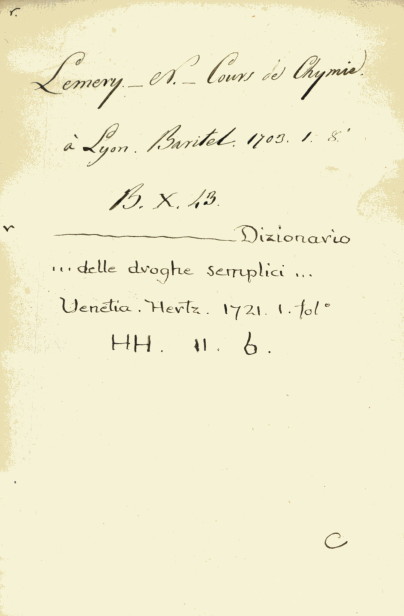 r.
Lemery _ N. _ Cours de Chymie.
à Lyon. Baritel. 1703. 1. 8.°
B. X. 43.
r
Dizionario
... delle droghe semplici ...
Venetia. Hertz. 1721. 1. fol°
HH. 11. 6.
C